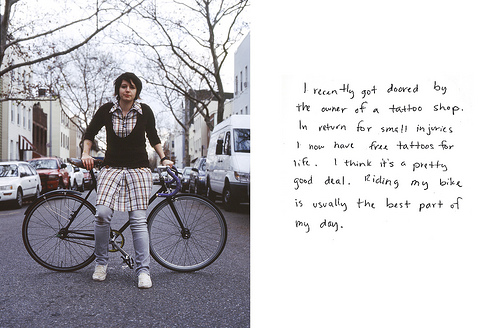 I recently got doored by
the owner of a tattoo shop.
In return for small injuries
I now have free tattoos for
life. I think it's a pretty
good deal. Riding my bike
is usually the best part of
my day.